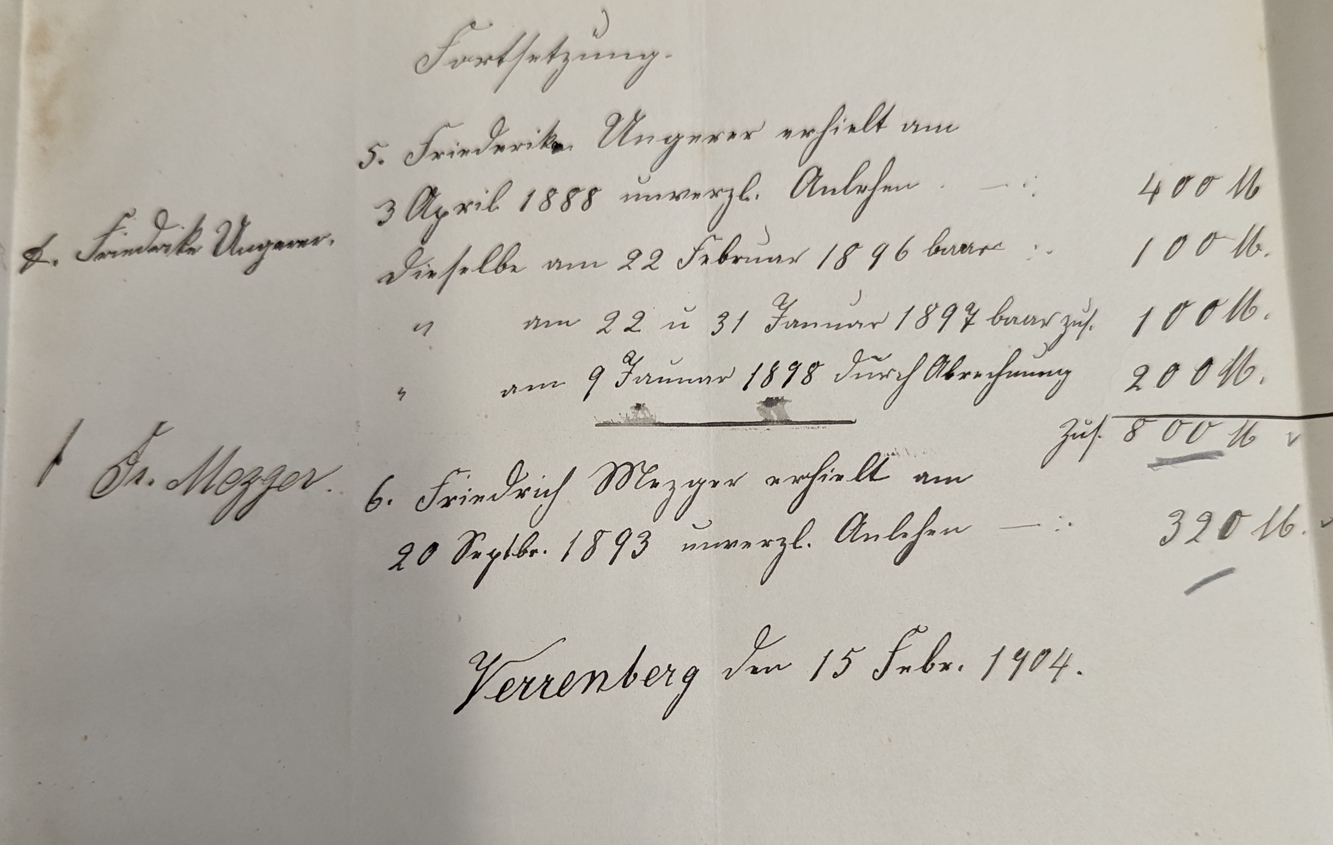 Fortsetzung.
5. Friederike Ungerer erhielt am
3 April 1888 unverzl. Anlehen . — : 400 M
t. Friedrike Ungerer.
dieselbe am 22 Februar 1896 baar : . 100 M.
" am 22 u 31 Januar 1897 baar zus. 100 M.
" am 9 Januar 1898 durch Abrechnung 200 M.
zus. 800 M
t Fr. Mezger.
6. Friedrich Mezger erhielt am
20 Septbr. 1893 unverzl. Anlehen — : . 320 M.
Verrenberg den 15 Febr. 1904.